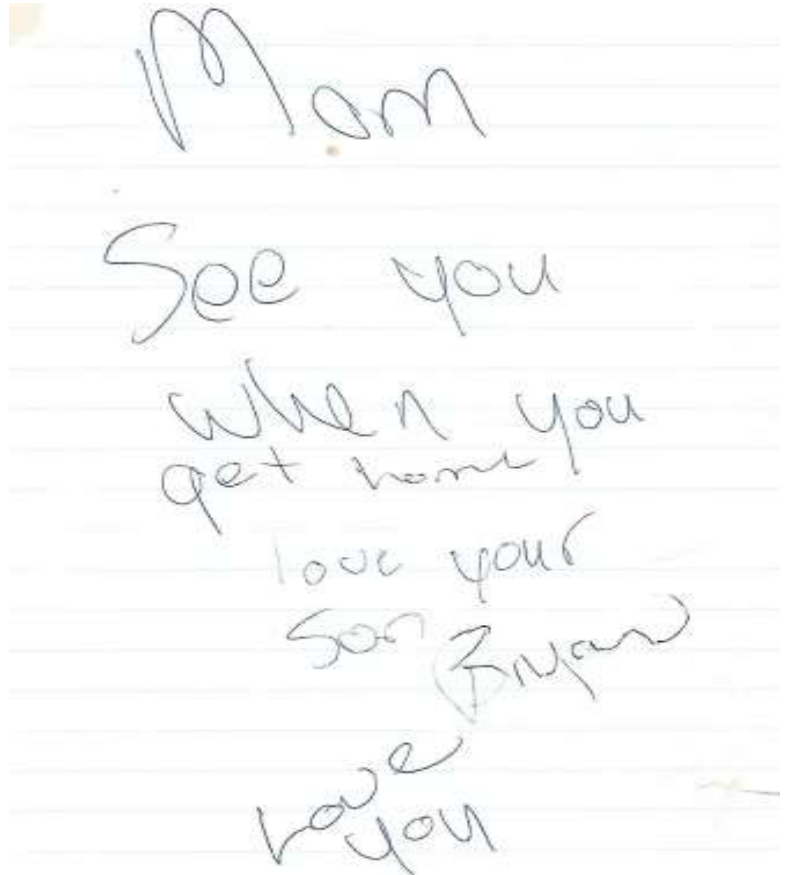 Mom
See you
when you
get home
love your
son Bryan
Love
you